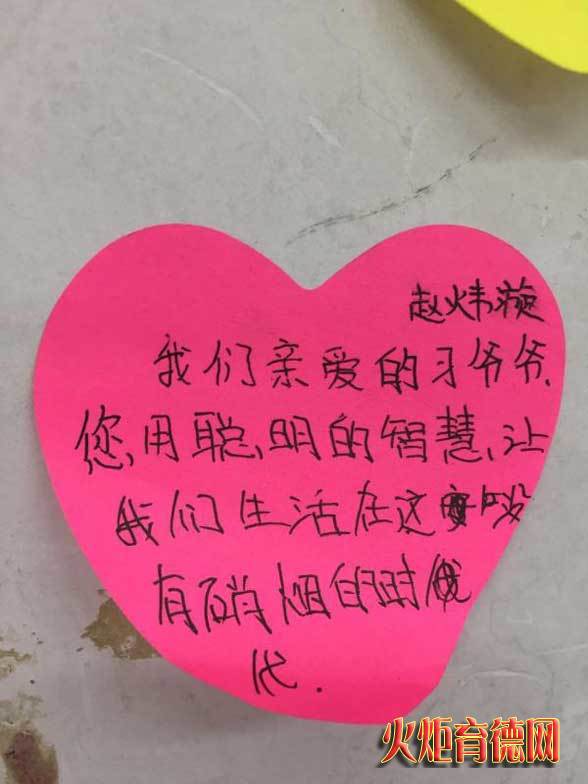 赵炜漩
我们亲爱的习爷爷,
您,用聪明的智慧,让
我们生活在这
有硝烟的时
代.
火炬育德网